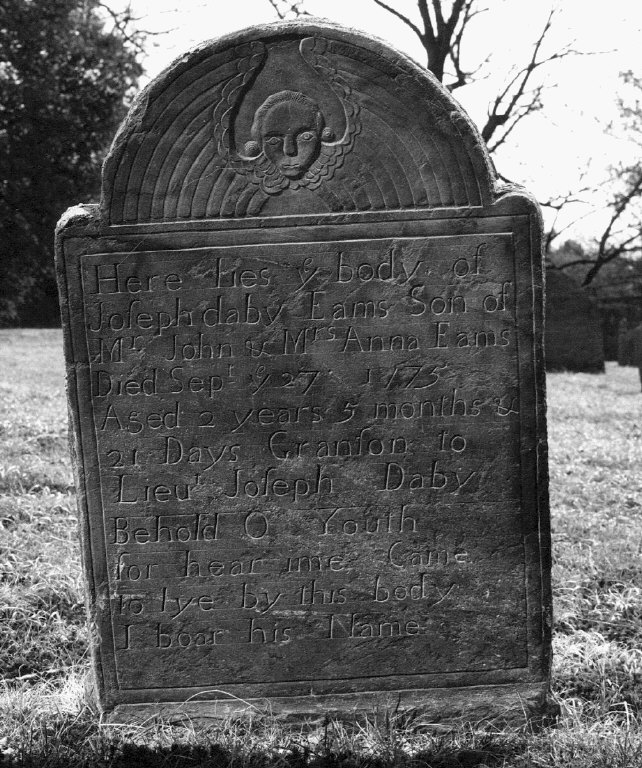 Here lies ẏ body of
Joſeph daby Eams Son of
Mr. John & Mrs Anna Eams
Died Sept. ẏ 27. 1775
Aged 2 years 5 months &
21 Days Granſon to
Lieut. Joſeph Daby
Behold O Youth
for hear ime Came
to lye by this body
I boar his Name